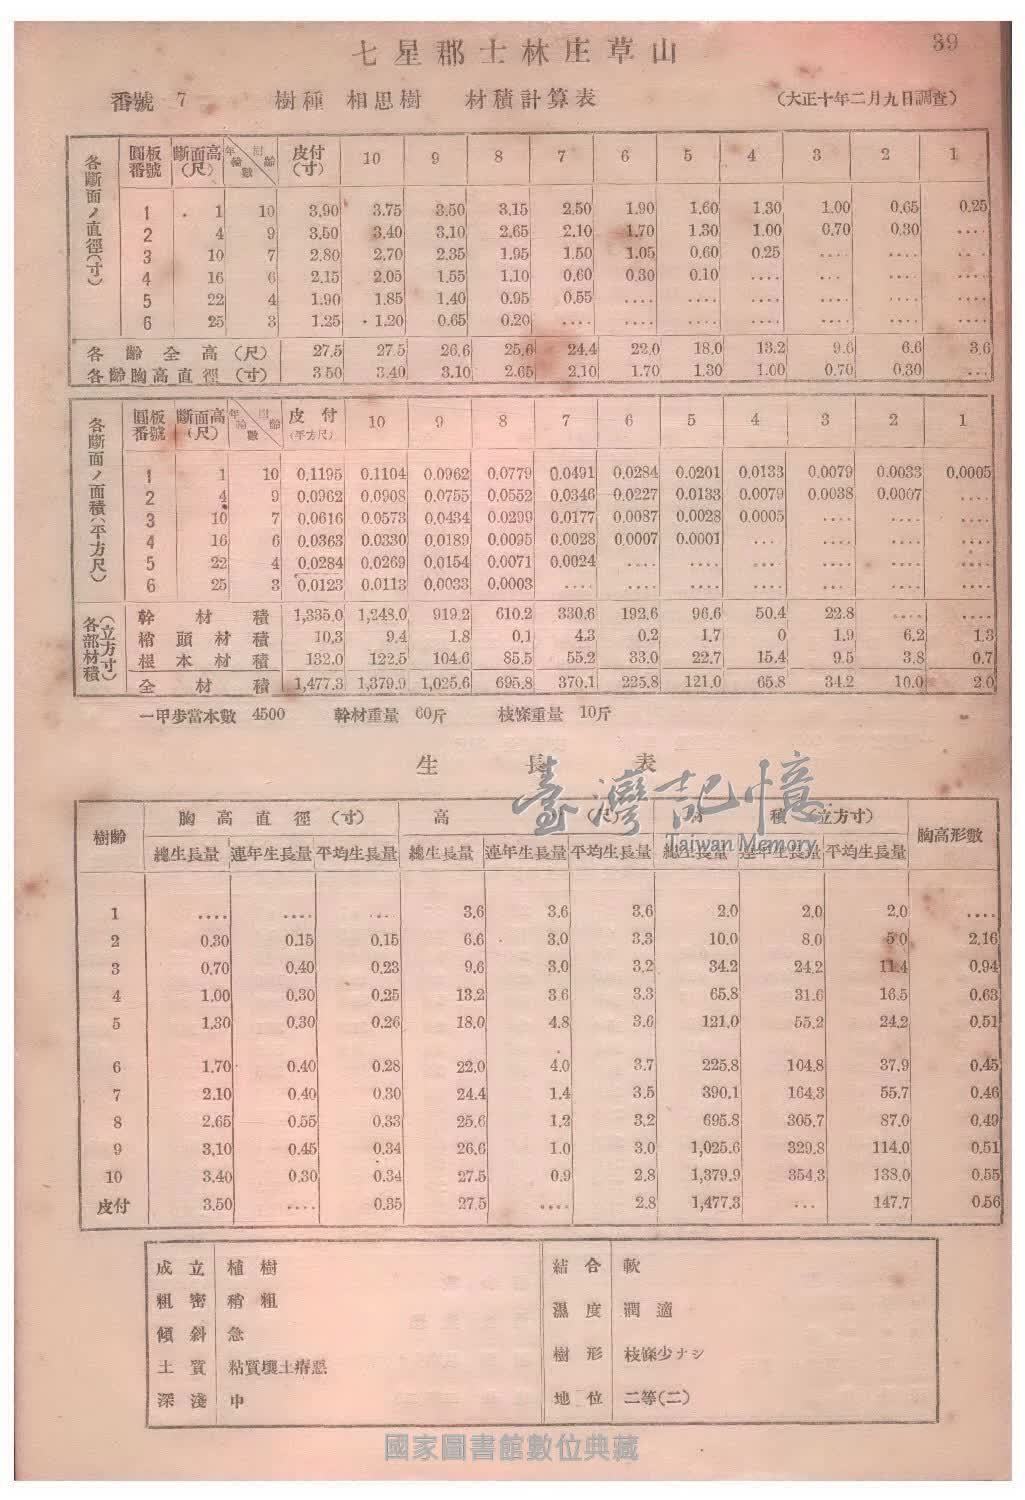 39
七星郡士林庄草山
番號 7 樹種 相思樹 材積計算表 (大正十年二月九日調查)
各斷面ノ直徑(寸) 圓板番號 斷面高(尺) 年輪數 樹齡 皮付(寸) 10 9 8 7 6 5 4 3 2 1
1 1 10 3.90 3.75 3.50 3.15 2.50 1.90 1.60 1.30 1.00 0.65 0.25
2 4 9 3.50 3.40 3.10 2.65 2.10 1.70 1.30 1.00 0.70 0.30 ....
3 10 7 2.80 2.70 2.35 1.95 1.50 1.05 0.60 0.25 .... .... ....
4 16 6 2.15 2.05 1.55 1.10 0.60 0.30 0.10 .... .... .... ....
5 22 4 1.90 1.85 1.40 0.95 0.55 .... .... .... .... .... ....
6 25 3 1.25 1.20 0.65 0.20 .... .... .... .... .... .... ....
各齡全高(尺) 27.5 27.5 26.6 25.6 24.4 22.0 18.0 13.2 9.6 6.6 3.6
各齡胸高直徑(寸) 3.50 3.40 3.10 2.65 2.10 1.70 1.30 1.00 0.70 0.30 ...
各斷面ノ面積(平方尺) 圓板番號 斷面高(尺) 年輪數 樹齡 皮付(平方尺) 10 9 8 7 6 5 4 3 2 1
1 1 10 0.1195 0.1104 0.0962 0.0779 0.0491 0.0284 0.0201 0.0133 0.0079 0.0033 0.0005
2 4 9 0.0962 0.0908 0.0755 0.0552 0.0346 0.0227 0.0133 0.0079 0.0038 0.0007 ....
3 10 7 0.0616 0.0573 0.0434 0.0299 0.0177 0.0087 0.0028 0.0005 .... .... ....
4 16 6 0.0363 0.0330 0.0189 0.0095 0.0028 0.0007 0.0001 ... .... .... ....
5 22 4 0.0284 0.0269 0.0154 0.0071 0.0024 .... .... .... .... .... ....
6 25 3 0.0123 0.0113 0.0033 0.0003 .... .... .... .... .... .... ....
各部材積(立方寸) 幹材積 1,335.0 1,248.0 919.2 610.2 330.6 192.6 96.6 50.4 22.8 .... ....
梢頭材積 10.3 9.4 1.8 0.1 4.3 0.2 1.7 0 1.9 6.2 1.3
根本材積 132.0 122.5 104.6 85.5 55.2 33.0 22.7 15.4 9.5 3.8 0.7
全材積 1,477.3 1,379.9 1,025.6 695.8 370.1 225.8 121.0 65.8 34.2 10.0 2.0
一甲步當本數 4500 幹材重量 60斤 枝條重量 10斤
生長表
樹齡 胸高直徑(寸) 高(尺) 材積(立方寸) 胸高形數
總生長量 連年生長量 平均生長量 總生長量 連年生長量 平均生長量 總生長量 連年生長量 平均生長量
1 .... .... ... 3.6 3.6 3.6 2.0 2.0 2.0 ....
2 0.30 0.15 0.15 6.6 3.0 3.3 10.0 8.0 5.0 2.16
3 0.70 0.40 0.23 9.6 3.0 3.2 34.2 24.2 11.4 0.94
4 1.00 0.30 0.25 13.2 3.6 3.3 65.8 31.6 16.5 0.63
5 1.30 0.30 0.26 18.0 4.8 3.6 121.0 55.2 24.2 0.51
6 1.70 0.40 0.28 22.0 4.0 3.7 225.8 104.8 37.9 0.45
7 2.10 0.40 0.30 24.4 1.4 3.5 390.1 164.3 55.7 0.46
8 2.65 0.55 0.33 25.6 1.2 3.2 695.8 305.7 87.0 0.49
9 3.10 0.45 0.34 26.6 1.0 3.0 1,025.6 329.8 114.0 0.51
10 3.40 0.30 0.34 27.5 0.9 2.8 1,379.9 354.3 138.0 0.55
皮付 3.50 .... 0.35 27.5 .... 2.8 1,477.3 ... 147.7 0.56
臺灣記憶
Taiwan Memory
成立 植樹
粗密 稍粗
傾斜 急
土質 粘質壤土瘠惡
深淺 中
結合 軟
濕度 潤適
樹形 枝條少ナシ
地位 二等(二)
國家圖書館數位典藏